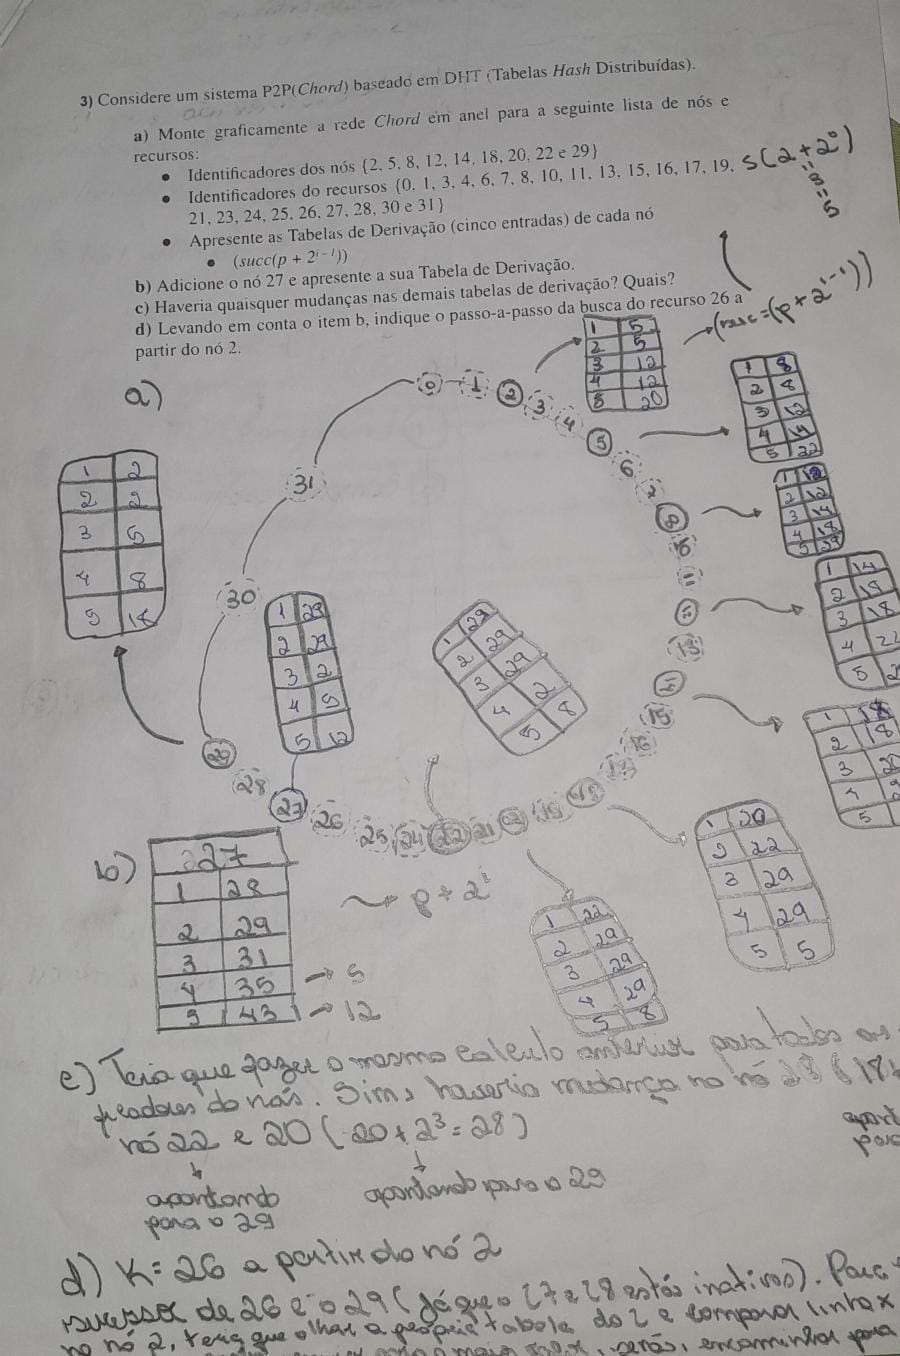 3) Considere um sistema P2P(Chord) baseado em DHT (Tabelas Hash Distribuídas).
a) Monte graficamente a rede Chord em anel para a seguinte lista de nós e
recursos:
• Identificadores dos nós {2, 5, 8, 12, 14, 18, 20, 22 e 29}
• Identificadores do recursos {0, 1, 3, 4, 6, 7, 8, 10, 11, 13, 15, 16, 17, 19,
21, 23, 24, 25, 26, 27, 28, 30 e 31}
• Apresente as Tabelas de Derivação (cinco entradas) de cada nó
• (succ(p + 2^(i-1)))
b) Adicione o nó 27 e apresente a sua Tabela de Derivação.
c) Haveria quaisquer mudanças nas demais tabelas de derivação? Quais?
d) Levando em conta o item b, indique o passo-a-passo da busca do recurso 26 a
partir do nó 2.
S(2+2⁰)
=3=5
=(p+2^(i-1)))
a)
0 1 2 3 4 5 6 7 8 10 11 12 13 14 15 16 17 18 19 20 21 22 24 25 26 27 28 29 30 31
1 5
2 5
3 12
4 12
5 20
1 8
2 8
3 12
4 14
5 22
1 12
2 12
3 14
4 18
5 29
1 14
2 14
3 18
4 22
5
1 18
2 18
3
4
5
1 20
2 22
3 29
4 29
5 5
1 22
2 29
3 29
4 29
5 8
1 29
2 29
3 29
4 2
5 8
1 29
2 29
3 2
4 5
5 12
1 2
2 2
3 5
4 8
5 14
b)
27
1 28
2 29
3 31
4 35 → 5
5 43 → 12
→ p + 2^i
c) Teria que fazer o mesmo calculo anterior para todos os
do nós. Sim, haveria mudança no nó
nó 22 e 20 (20+2³=28)
apontando
para o 29
apontando para o 29
d) K=26 a partir do nó 2
sucessor de 26 é o 29 (já que o 27 e 28 estão inativos). Para
no nó 2, teria que olhar a própria tabela do 2 e comparar linha x
encaminhar para